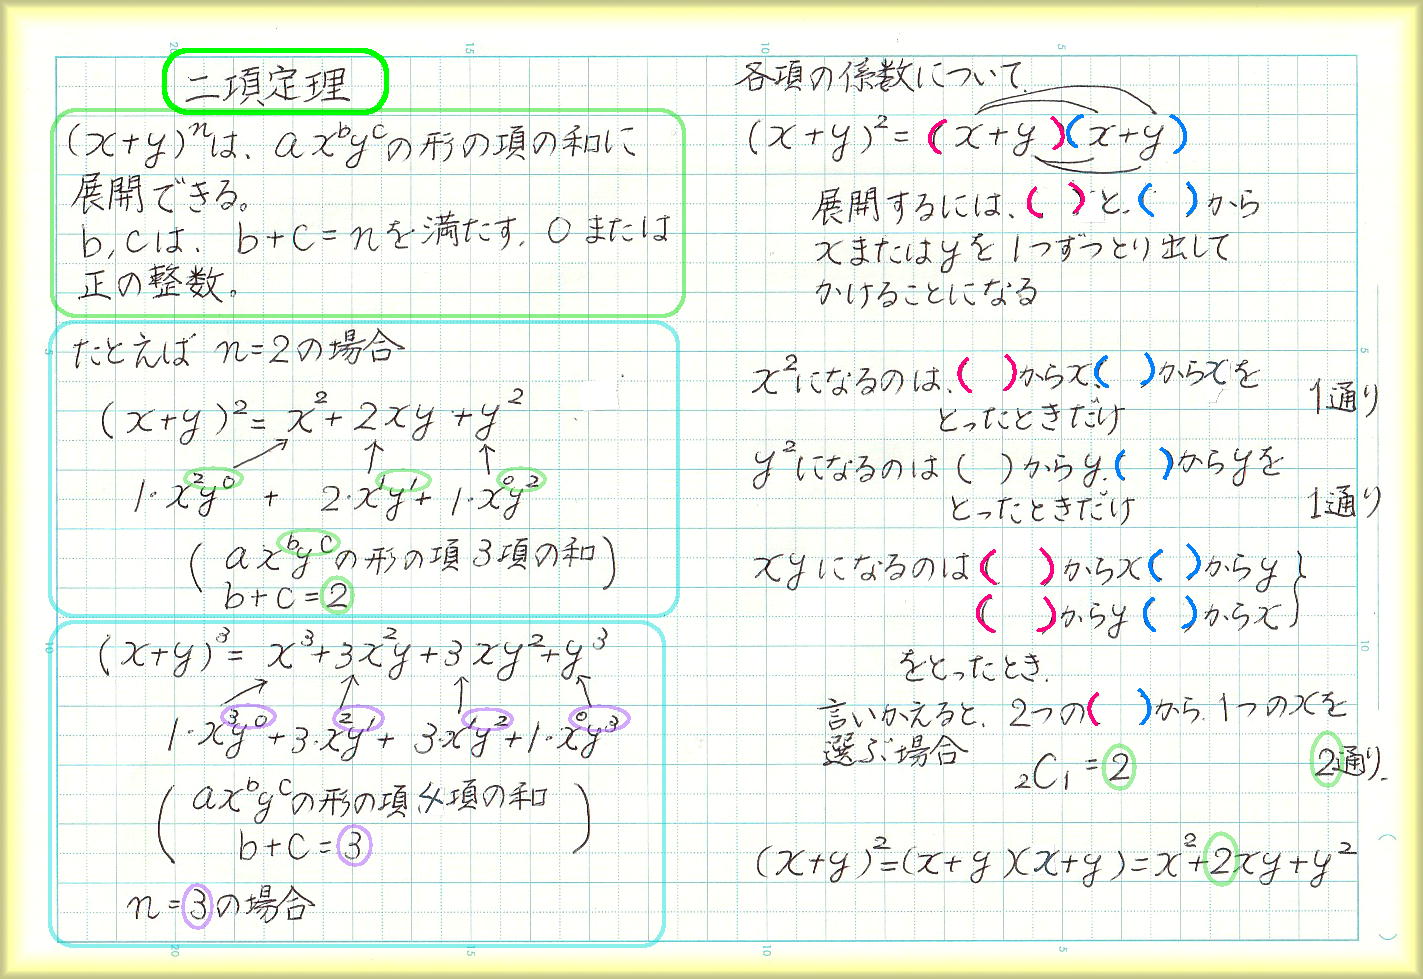 二項定理
(x+y)ⁿは、axᵇyᶜの形の項の和に
展開できる。
b,cは、b+c=nを満たす、0または
正の整数。
たとえば n=2の場合
(x+y)²= x²+2xy+y²
1·x²y⁰ + 2·x¹y¹+ 1·x⁰y²
(axᵇyᶜの形の項3項の和)
b+c=2
(x+y)³= x³+3x²y+3xy²+y³
1·x³y⁰+3·x²y¹+ 3·x¹y²+1·x⁰y³
(axᵇyᶜの形の項4項の和
b+c=3)
n=3の場合
各項の係数について
(x+y)²=(x+y)(x+y)
展開するには、( )と、( )から
xまたはyを1つずつとり出して
かけることになる
x²になるのは、( )からx、( )からxを
とったときだけ
1通り
y²になるのは( )からy、( )からyを
とったときだけ
1通り
xyになるのは( )からx( )からy
( )からy( )からx}
をとったとき、
言いかえると、2つの( )から、1つのxを
選ぶ場合
₂C₁=2
2通り、
(x+y)²=(x+y)(x+y)=x²+2xy+y²